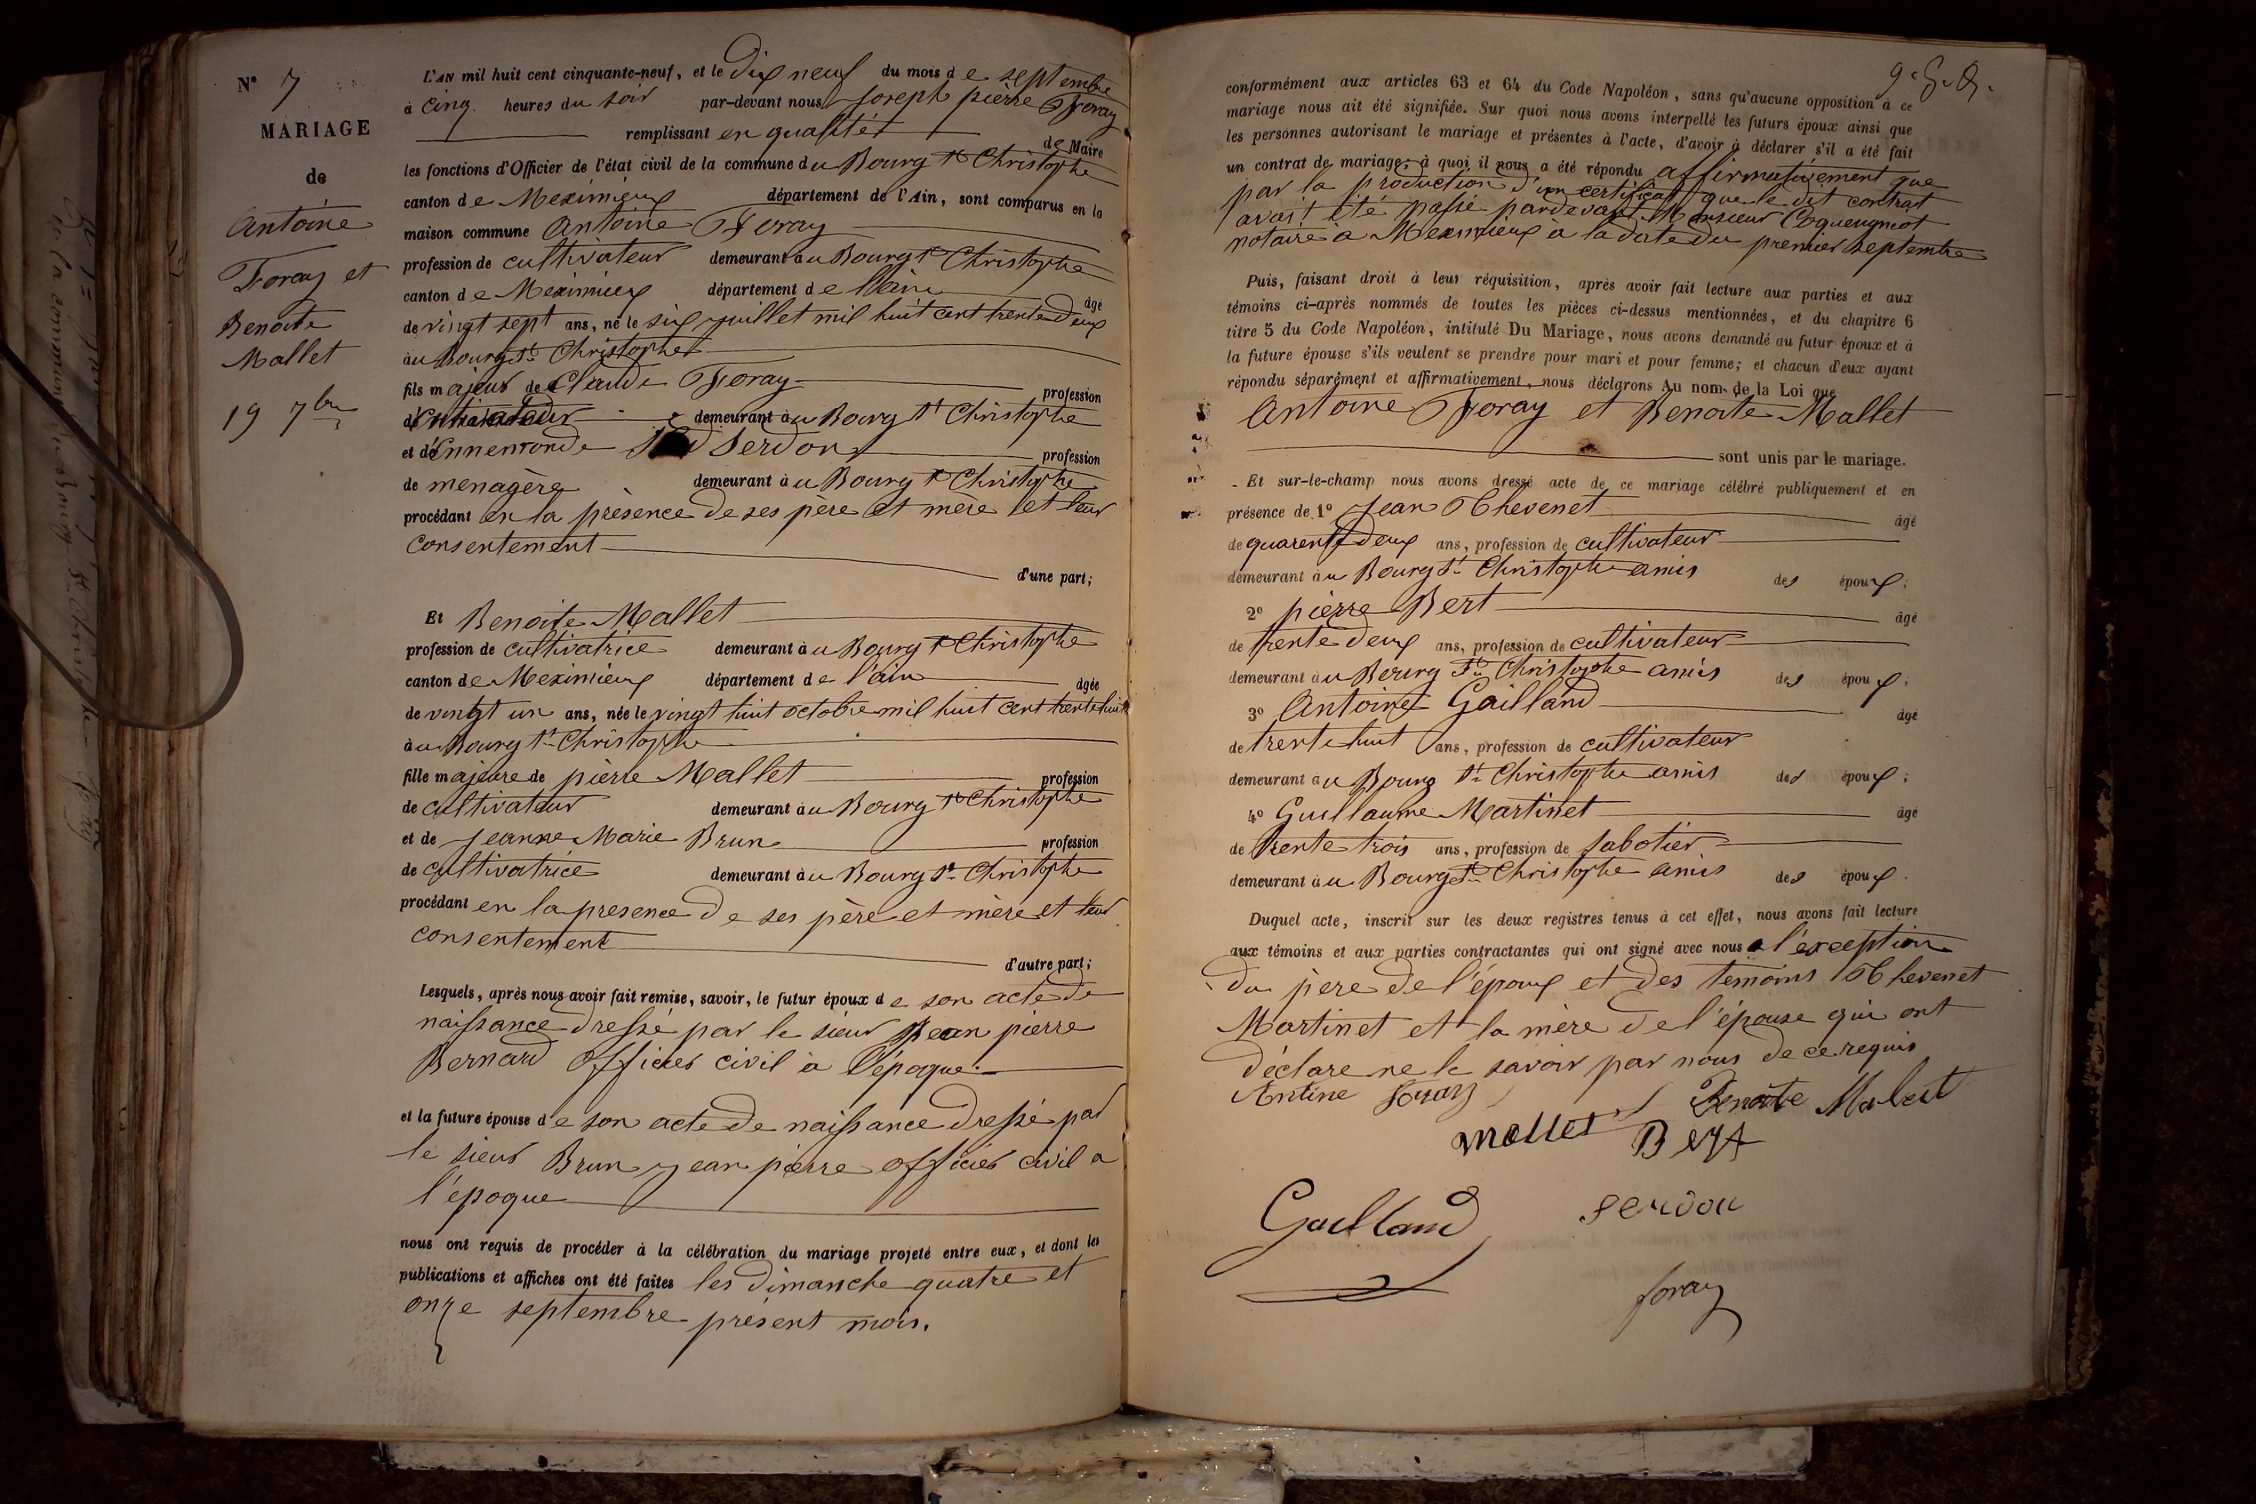 N° 7
MARIAGE
de
Antoine
Foray et
Benoite
Mallet
19 7bre
L'AN mil huit cent cinquante-neuf, et le dix neuf du mois de septembre
à cinq heures du soir par-devant nous Joseph pierre Foray
remplissant en qualité de Maire
les fonctions d'Officier de l'état civil de la commune du Bourg St Christophe
canton de Meximieux département de l'Ain, sont comparus en la
maison commune Antoine Foray
profession de cultivateur demeurant au Bourg St Christophe
canton de Meximieux département de l'ain âgé
de vingt sept ans, né le six juillet mil huit cent trente deux
au Bourg St Christophe
fils majeur de Claude Foray profession
de cultivateur demeurant au Bourg St Christophe
et d'Ennemonde Serdon profession
de menagère demeurant au Bourg St Christophe
procédant en la présence de ses père et mère et leur
consentement
d'une part;
Et Benoite Mallet
profession de cultivatrice demeurant au Bourg St Christophe
canton de Meximieux département de l'ain âgée
de vingt un ans, née le vingt huit octobre mil huit cent trente huit
au Bourg St Christophe
fille majeure de pierre Mallet profession
de cultivateur demeurant au Bourg St Christophe
et de Jeanne Marie Brun profession
de cultivatrice demeurant au Bourg St Christophe
procédant en la presence de ses père et mère et leur
consentement
d'autre part;
Lesquels, après nous avoir fait remise, savoir, le futur époux de son acte de
naissance dressé par le sieur Jean pierre
Bernard officier civil à l'époque
et la future épouse de son acte de naissance dressé par
le sieur Brun Jean pierre officier civil a
l'époque
nous ont requis de procéder à la célébration du mariage projeté entre eux, et dont les
publications et affiches ont été faites les dimanche quatre et
onze septembre présent mois.
conformément aux articles 63 et 64 du Code Napoléon, sans qu'aucune opposition à ce
mariage nous ait été signifiée. Sur quoi nous avons interpellé les futurs époux ainsi que
les personnes autorisant le mariage et présentes à l'acte, d'avoir à déclarer s'il a été fait
un contrat de mariage; à quoi il nous a été répondu affirmativement que
par la production d'un certificat que le dit contrat
avait été passé pardevant Monsieur Coquengniot
notaire a Meximieux a la date du premier septembre
Puis, faisant droit à leur réquisition, après avoir fait lecture aux parties et aux
témoins ci-après nommés de toutes les pièces ci-dessus mentionnées, et du chapitre 6
titre 5 du Code Napoléon, intitulé Du Mariage, nous avons demandé au futur époux et à
la future épouse s'ils veulent se prendre pour mari et pour femme; et chacun d'eux ayant
répondu séparément et affirmativement, nous déclarons Au nom de la Loi que
Antoine Foray et Benoite Mallet
sont unis par le mariage.
Et sur-le-champ nous avons dressé acte de ce mariage célébré publiquement et en
présence de 1° Jean Thevenet âgé
de quarente deux ans, profession de cultivateur
demeurant au Bourg St Christophe amis des époux;
2° pierre Bert âgé
de trente deux ans, profession de cultivateur
demeurant au Bourg St Christophe amis des époux;
3° Antoine Gailland âgé
de trente huit ans, profession de cultivateur
demeurant au Bourg St Christophe amis des époux;
4° Guillaume Martinet âgé
de trente trois ans, profession de sabotier
demeurant au Bourg St Christophe amis des époux.
Duquel acte, inscrit sur les deux registres tenus à cet effet, nous avons fait lecture
aux témoins et aux parties contractantes qui ont signé avec nous a l'exception
du père de l'époux et des temoins Thevenet
Martinet et la mère de l'épouse qui ont
déclare ne le savoir par nous de ce requis
Antine Foray Benoite Malet
mallet Bert
Gailland serdon
foray